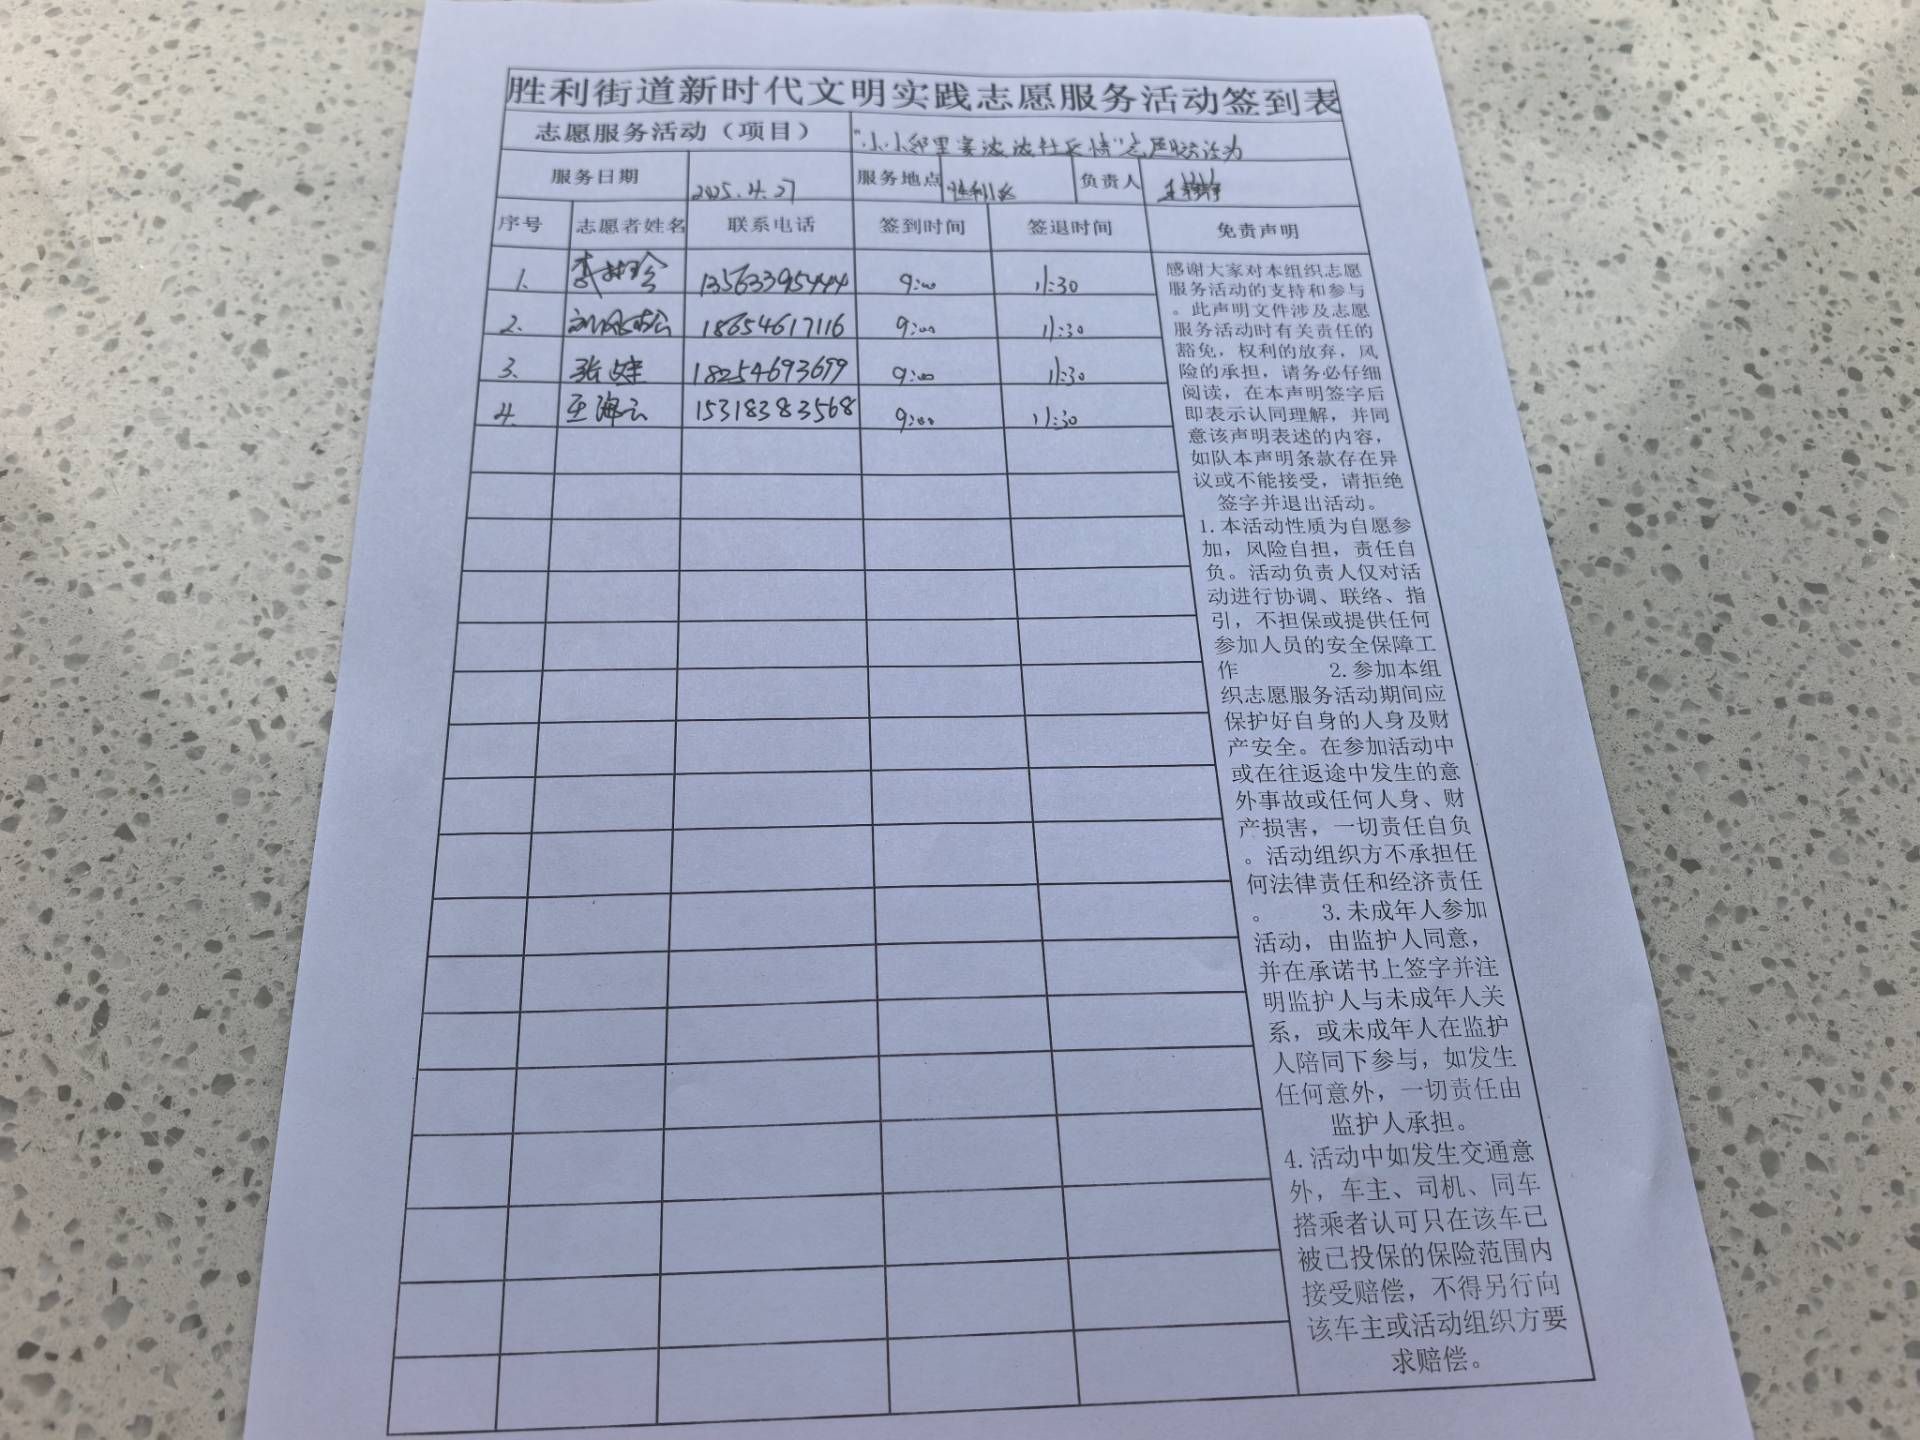 胜利街道新时代文明实践志愿服务活动签到表
志愿服务活动（项目） "小小邻里宴 浓浓社区情"志愿服务活动
服务日期 2025.4.27 服务地点 胜利小区 负责人
序号 志愿者姓名 联系电话 签到时间 签退时间 免责声明
1. 13563395444 9:00 11:30
2. 18654617116 9:00 11:30
3. 张 18254693699 9:00 11:30
4. 王海云 15318383568 9:00 11:30
感谢大家对本组织志愿
服务活动的支持和参与
。此声明文件涉及志愿
服务活动时有关责任的
豁免，权利的放弃，风
险的承担，请务必仔细
阅读，在本声明签字后
即表示认同理解，并同
意该声明表述的内容，
如队本声明条款存在异
议或不能接受，请拒绝
签字并退出活动。
1.本活动性质为自愿参
加，风险自担，责任自
负。活动负责人仅对活
动进行协调、联络、指
引，不担保或提供任何
参加人员的安全保障工
作 2.参加本组
织志愿服务活动期间应
保护好自身的人身及财
产安全。在参加活动中
或在往返途中发生的意
外事故或任何人身、财
产损害，一切责任自负
。活动组织方不承担任
何法律责任和经济责任
。 3.未成年人参加
活动，由监护人同意，
并在承诺书上签字并注
明监护人与未成年人关
系，或未成年人在监护
人陪同下参与，如发生
任何意外，一切责任由
监护人承担。
4.活动中如发生交通意
外，车主、司机、同车
搭乘者认可只在该车已
被已投保的保险范围内
接受赔偿，不得另行向
该车主或活动组织方要
求赔偿。